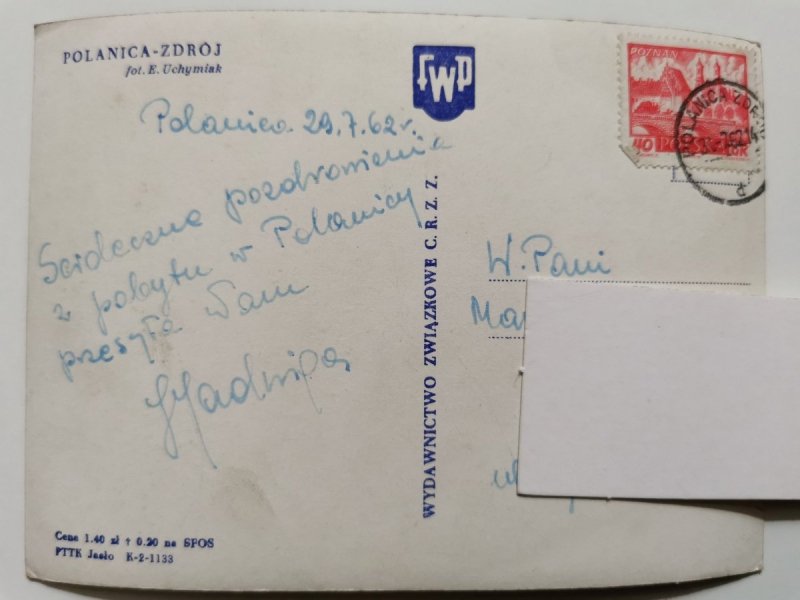 POLANICA-ZDRÓJ
fot. E. Uchymiak
FWP
Polanica 29.7.62 r.
Serdeczne pozdrowienia
z pobytu w Polanicy
przesyła Wam
Jadwiga
Cena 1.40 zł + 0.20 na SFOS
PTTK Jasło K-2-1133
WYDAWNICTWO ZWIĄZKOWE C. R. Z. Z.
POZNAŃ
40
POLANICA ZDRÓJ
W. Pani